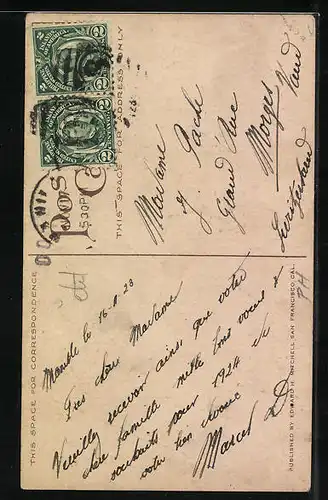 THIS SPACE FOR ADDRESS ONLY
Post Ca
5 30 PM
Madame
J.
Grand Rue
Morges
Vaud
THIS SPACE FOR CORRESPONDENCE
PUBLISHED BY EDWARD H. MITCHELL SAN FRANCISCO CAL.
Manille le 16-11-23
Très chère Madame
Veuillez recevoir ainsi que votre
chère famille mille bons voeux &
souhaits pour 1924 de
votre bien dévoué
Marcel